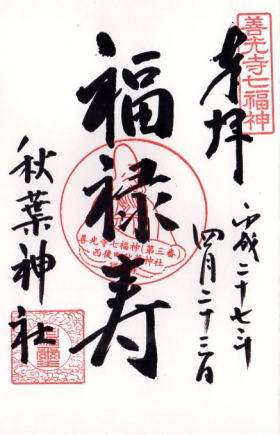 善光寺七福神
奉拝
平成二十七年
四月二十三日
福禄寿
善光寺七福神(第三番)
秋葉神社